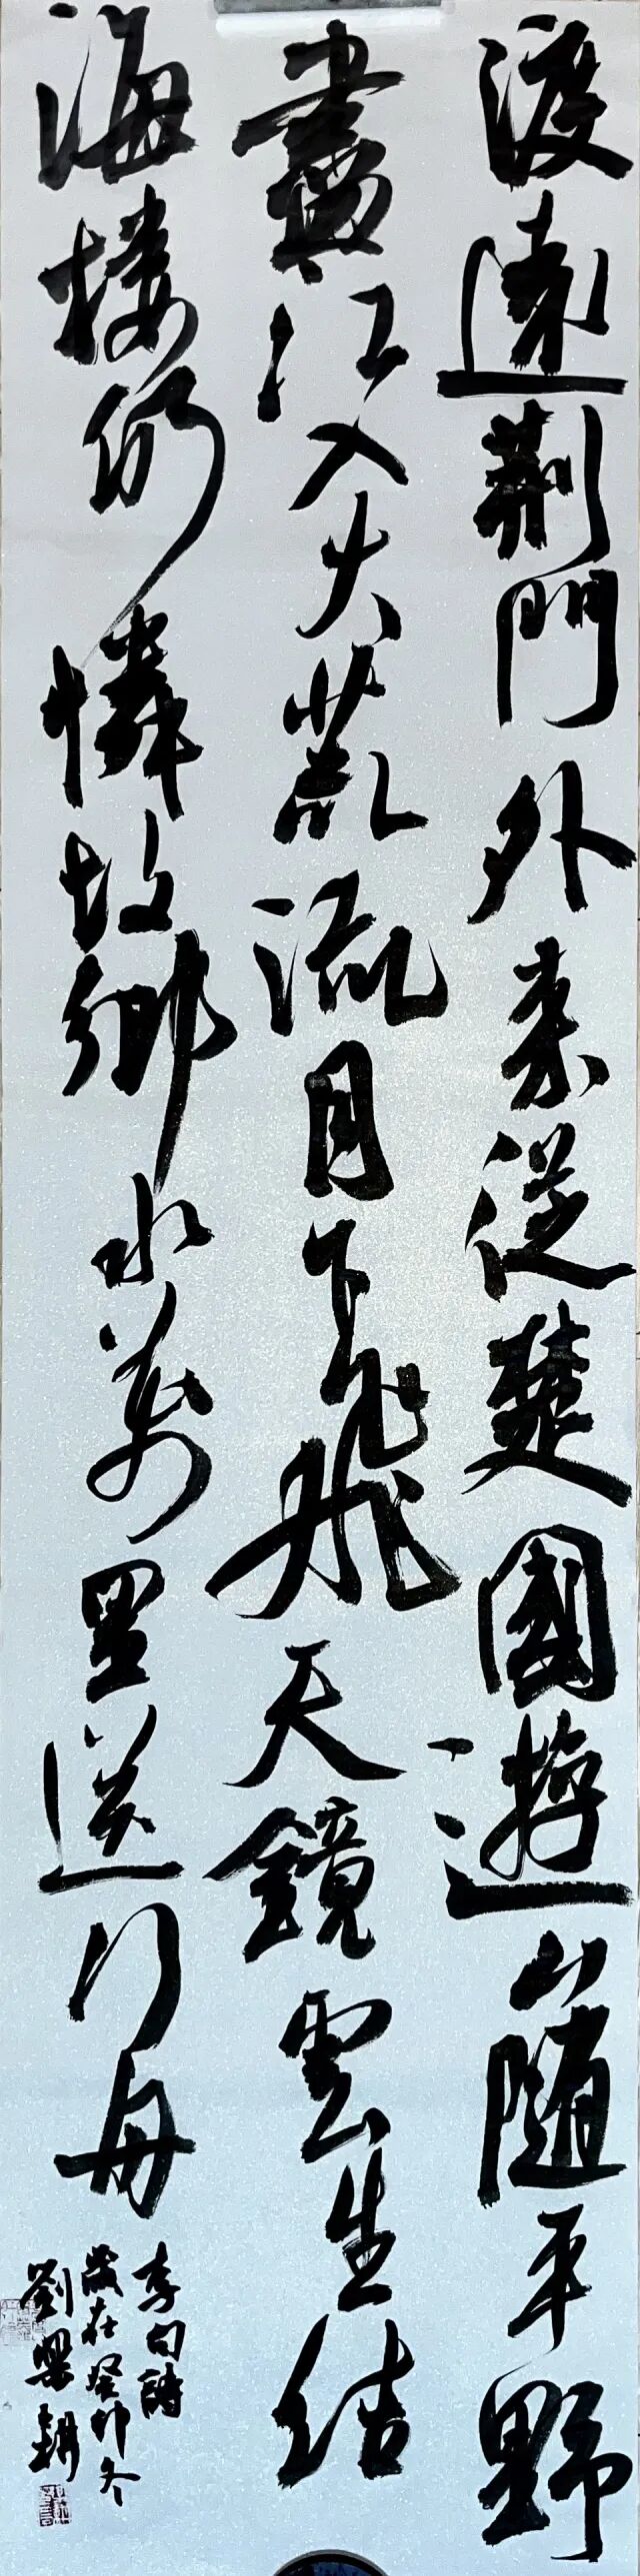 渡遠荊門外來從楚國遊山隨平野
盡江入大荒流月下飛天鏡雲生結
海樓仍憐故鄉水萬里送行舟
李白詩
歲在癸卯冬
劉梁耕